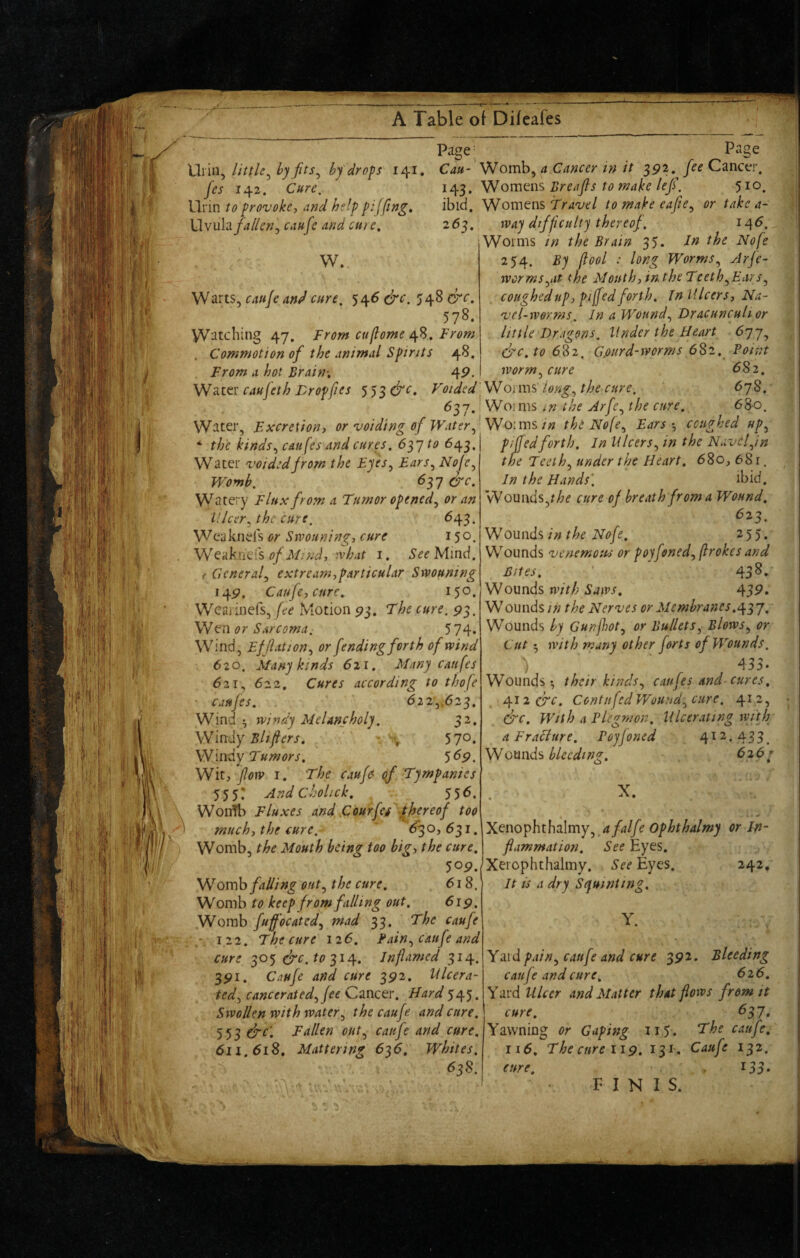 A Table of Diſeaſes
Page
Urin, little, by fits, by drops 141. Cau-
ſes 142. Cure. 143.
Urin to provoke, and help piſſing. ibid.
Uvula fallen, cauſe and cure. 263.
W.
Warts, cauſe and cure. 546 &c. 548 &c.
578.
Watching 47. From cuſtome 48. From
Commotion of the animal Spirits 48.
From a hot Brain. 49.
Water cauſeth Dropſies 553 &c. Voided
637.
Water, Excretion, or voiding of Water,
the kinds, cauſes and cures. 637 to 643.
Water voided from the Eyes, Ears, Noſe,
Womb. 637 &c.
Watery Flux from a Tumor opened, or an
Ulcer, the cure. 643.
Weakneſs or Swouning, cure 150.
Weakneſs of Mind, what 1. See Mind.
General, extream, particular Swouning
149. Cauſe, cure. 150.
Wearineſs, ſee Motion 93. The cure. 93.
Wen or Sarcoma. 574.
Wind, Efflation, or ſending forth of wind
620. Many kinds 621. Many cauſes
621, 622. Cures according to thoſe
cauſes. 622, 623.
Wind; windy Melancholy. 32.
Windy Bliſters. 570.
Windy Tumors. 569.
Wit, ſlow 1. The cauſe of Tympanies
555. And Cholick. 556.
Womb Fluxes and Courſes thereof too
much, the cure. 630, 631.
Womb, the Mouth being too big, the cure.
509.
Womb falling out, the cure. 618.
Womb to keep from falling out. 619.
Womb ſuffocated, mad 33. The cauſe
122. The cure 126. Pain, cauſe and
cure 305 &c. to 314. Inflamed 314.
391. Cauſe and cure 392. Ulcera-
ted, cancerated, ſee Cancer. Hard 545.
Swollen with water, the cauſe and cure.
553 &c. Fallen out, cauſe and cure.
611. 618. Mattering 636. Whites.
638.
Page
Womb, a Cancer in it 392. ſee Cancer.
Womens Breaſts to make leſſ. 510.
Womens Travel to make eaſie, or take a-
way difficulty thereof. 146.
Worms in the Brain 35. In the Noſe
254. By ſtool : long Worms, Arſe-
worms, at the Mouth, in the Teeth, Ears,
coughed up, piſſed forth. In Ulcers, Na-
vel-worms. In a Wound, Dracunculi or
little Dragons. Under the Heart 677,
&c. to 682. Gourd-worms 682. Point
worm, cure 682.
Worms long, the cure. 678.
Worms in the Arſe, the cure. 680.
Worms in the Noſe, Ears; coughed up,
piſſed forth. In Ulcers, in the Navel, in
the Teeth, under the Heart. 680, 681.
In the Hands. ibid.
Wounds, the cure of breath from a Wound.
623.
Wounds in the Noſe. 255.
Wounds venemous or poyſoned, ſtrokes and
Bites. 438.
Wounds with Saws. 439.
Wounds in the Nerves or Membranes. 437.
Wounds by Gunſhot, or Bullets, Blows, or
Cut; with many other ſorts of Wounds.
433.
Wounds; their kinds, cauſes and cures.
412 &c. Contuſed Wound, cure. 412,
&c. With a Plegmon. Ulcerating with
a Fracture. Poyſoned 412. 433.
Wounds bleeding. 626.
X.
Xenophthalmy, a falſe Ophthalmy or In-
flammation. See Eyes.
Xerophthalmy. See Eyes. 242.
It is a dry Squinting.
Y.
Yard pain, cauſe and cure 392. Bleeding
cauſe and cure. 626.
Yard Ulcer and Matter that flows from it
cure. 637.
Yawning or Gaping 115. The cauſe.
116. The cure 119. 131. Cauſe 132.
cure. 133.
FINIS.